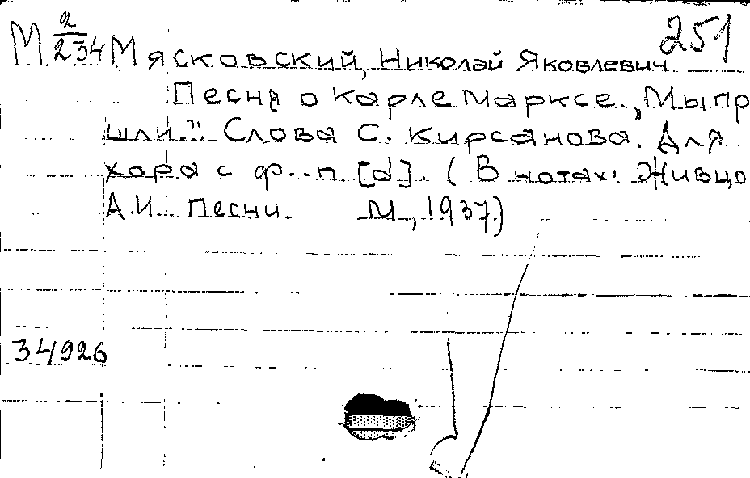 251
М 2/234 Мясковский, Николай Яковлевич
Песня о Карле Марксе. „Мы пр
шли". Слова С. Кирсанова. Для
хора с ф.-п. [d]. (В нотах: Живцо
А.И. Песни. М., 1937)
34926